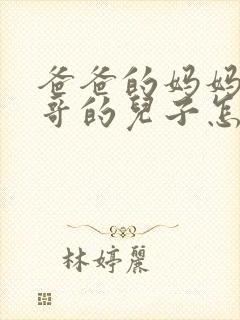 爸爸的妈妈
哥的兒子怎
林婷麗